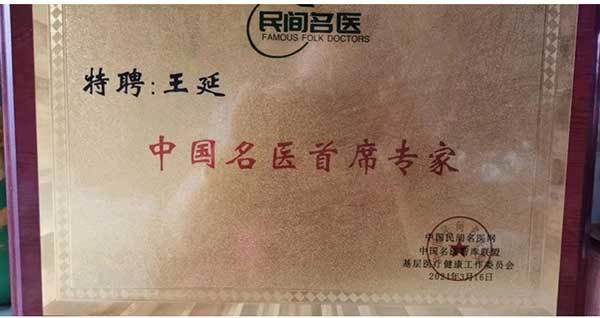 民间名医
FAMOUS FOLK DOCTORS
特聘:王延
中国名医首席专家
中国民间名医网
中国名医智库联盟
基层医疗健康工作委员会
2021年3月16日